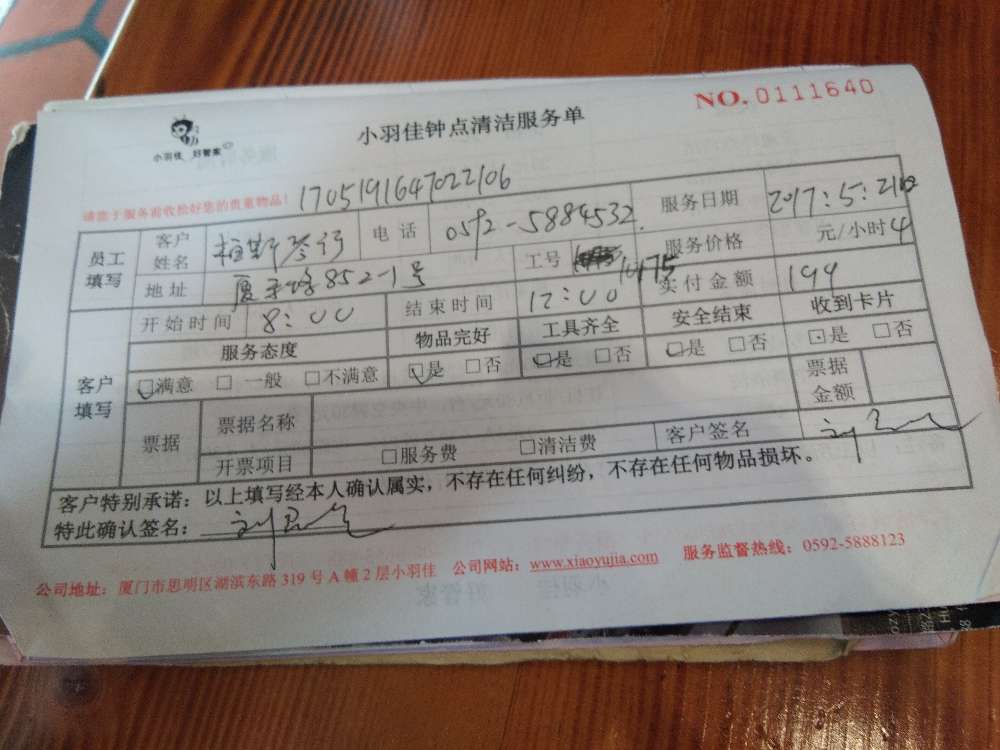 NO.0111640
小羽佳 好管家
小羽佳钟点清洁服务单
请您于服务前收捡好您的贵重物品! 1705191647022106
员工填写 客户姓名 柏斯琴行 电话 0592-5884532 服务日期 2017:5:21
地址 852-1号 工号 175 服务价格 元/小时 4
客户填写 开始时间 8:00 结束时间 12:00 实付金额 199
服务态度 物品完好 工具齐全 安全结束 收到卡片
满意 一般 不满意 是 否 是 否 是 否 是 否
票据 票据名称 票据金额
开票项目 服务费 清洁费 客户签名
客户特别承诺:以上填写经本人确认属实,不存在任何纠纷,不存在任何物品损坏。
特此确认签名:
公司地址:厦门市思明区湖滨东路319号A幢2层小羽佳 公司网站:www.xiaoyujia.com 服务监督热线:0592-5888123